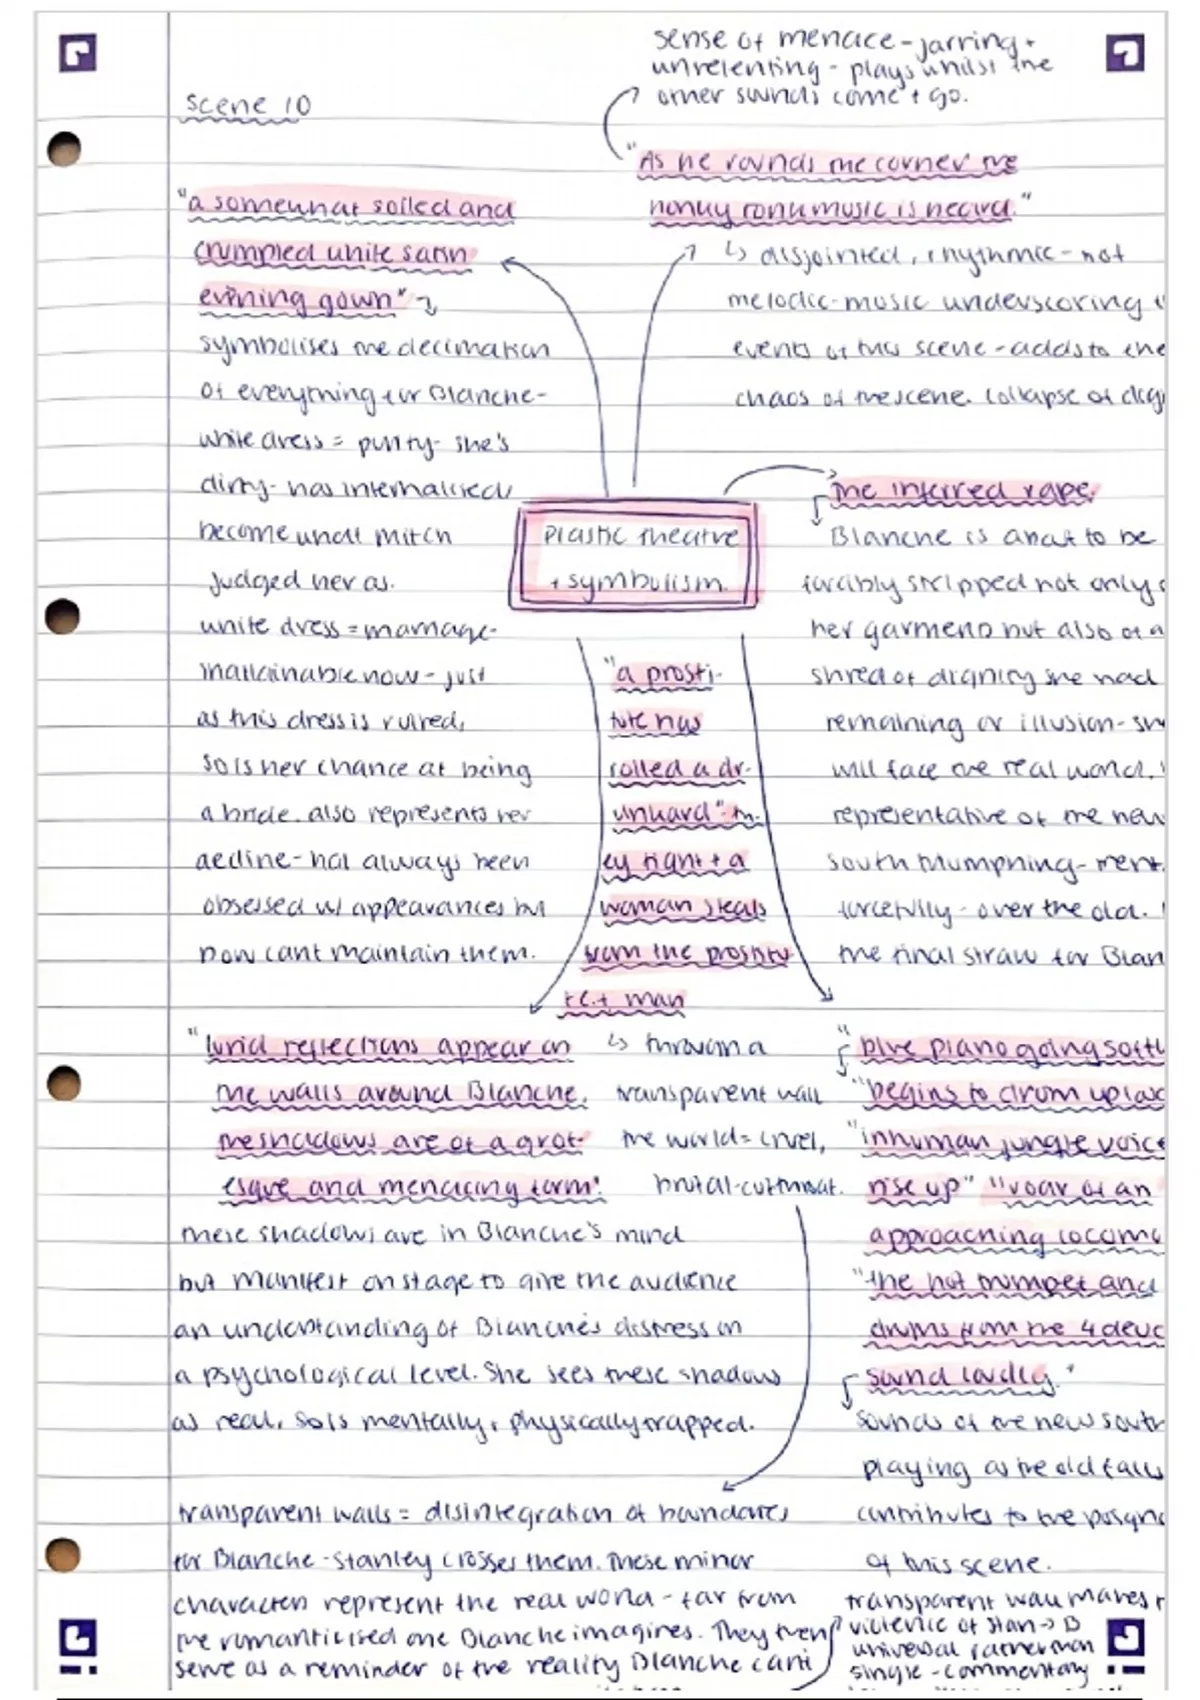 Scene 10
sense of menace - jarring +
unrelenting - plays whilst the
other sounds come + go.
"As he rounds the corner the
honky tonk music is heard."
↳ disjointed, rhythmic - not
melodic - music underscoring
events of this scene - adds to the
chaos of the scene. Collapse of
"a somewhat soiled and
crumpled white satin
evening gown"
symbolises the decimation
of everything for Blanche -
white dress = purity - she's
dirty - has internalised
become what Mitch
judged her as.
white dress = marriage -
now - just
as this dress is ruined,
so is her chance at being
a bride. also represents her
decline - had always been
obsessed w/ appearances but
now cant maintain them.
plastic theatre
+ symbolism.
the inferred rape.
Blanche is about to be
forcibly stripped not only
her garments but also of a
shred of dignity she had
remaining or illusion - sh
will face the real world.
representative of the new
south triumphing -
forcefully - over the old.
the final straw for Blan
"a prosti-
tute has
rolled a dr-
unkard" - th-
ey fight + a
woman steals
from the prostitu
te + man
↳ through a
transparent wall
the world = cruel,
brutal - cutthroat.
"lurid reflections appear on
the walls around Blanche.
the shadows are of a grot-
esque and menacing form".
these shadows are in Blanche's mind
but manifest on stage to give the audience
an understanding of Blanche's distress on
a psychological level. She sees these shadows
as real, so is mentally + physically trapped.
"blue piano going softl
"begins to drum up loud
"inhuman jungle voice
rise up" "roar of an
approaching locomo
"the hot trumpet and
drums from the 4 deuc
sound loudly."
sounds of the new south
playing as the old falls
contributes to the
of this scene.
transparent walls = disintegration of boundaries
for Blanche - Stanley crosses them. These minor
characters represent the real world - far from
the romanticised one Blanche imagines. They then
serve as a reminder of the reality Blanche cant
transparent wall makes
violence of Stan → B
universal rather than
single - commentary